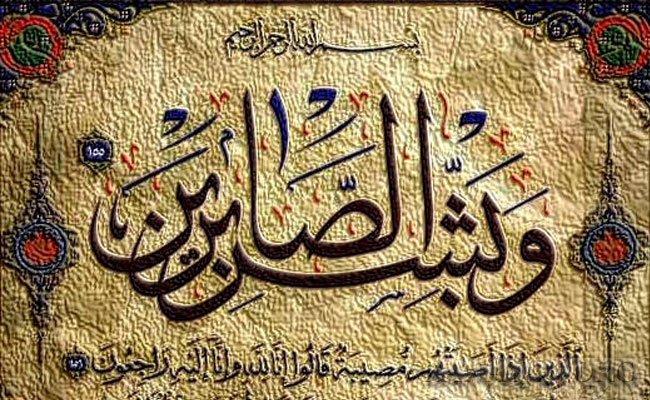 بسم الله الرحمن الرحيم
وَبَشِّرِ الصَّابِرِينَ ١٥٥
الَّذِينَ إِذَا أَصَابَتْهُم مُّصِيبَةٌ قَالُوا إِنَّا لِلَّهِ وَإِنَّا إِلَيْهِ رَاجِعُونَ ١٥٦